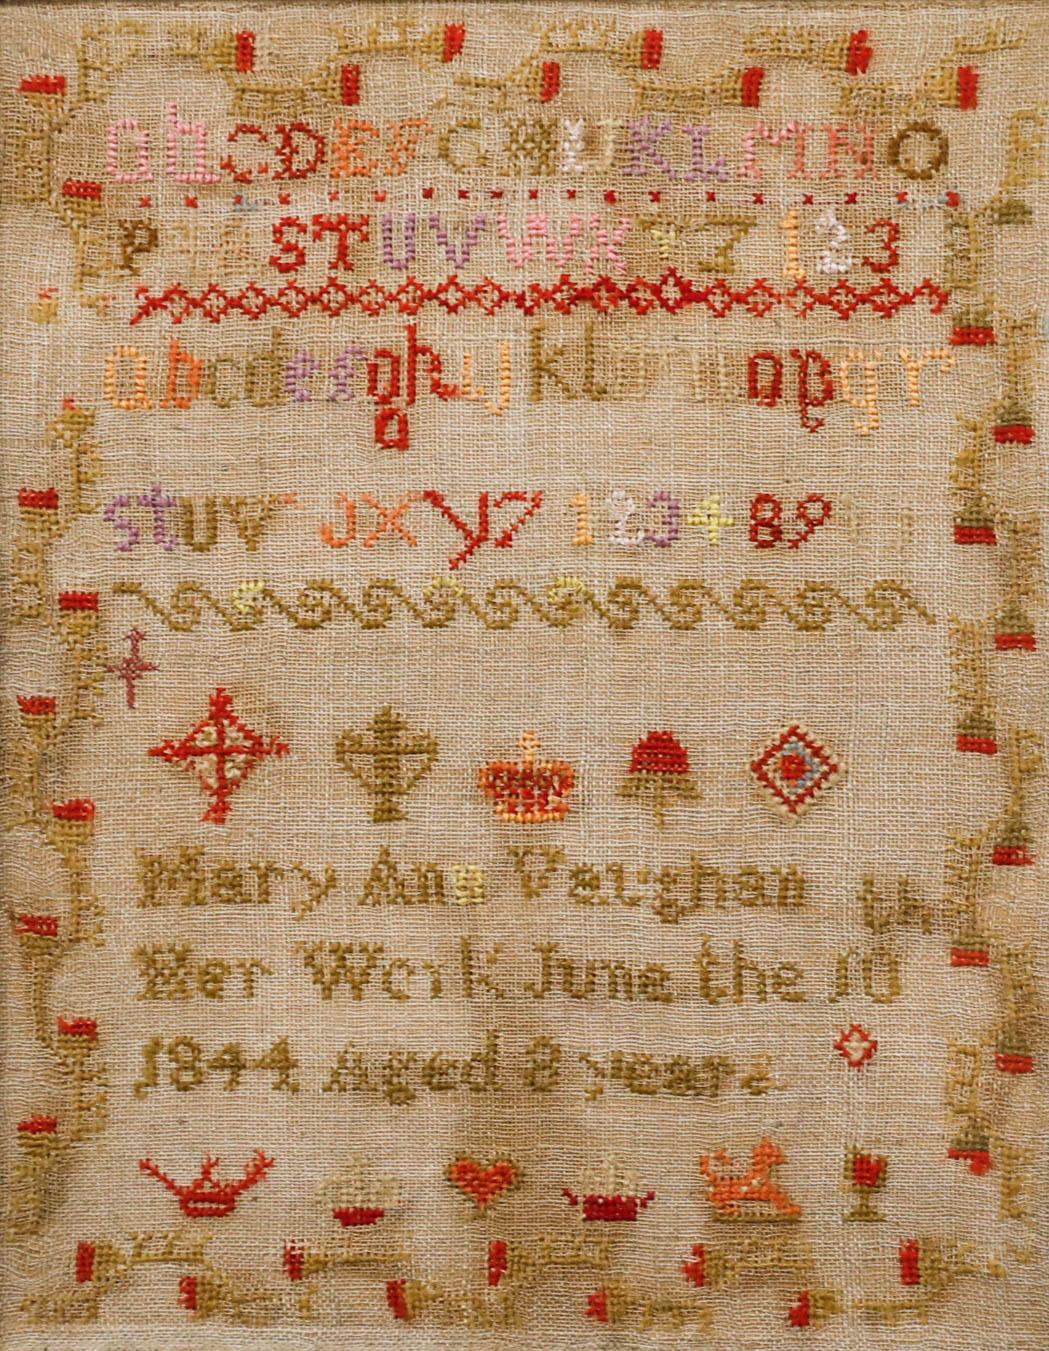 abCDEFGHIJKLMNO
P STUVWXYZ 123
abcdefghijklmnopqr
stuv JXyz 1234 89
Mary Ann Vaughan
Her Work June the 10 th
1844 Aged 8 years